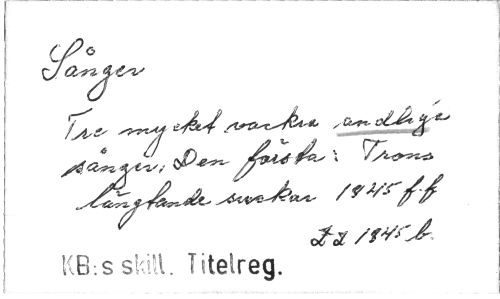 Sånger
Tre mycket vackra andlig'a
sånger; Den första: Trons
långtande suckar 1845 f.f
ZZ 1845 b.
KB:s skill. Titelreg.